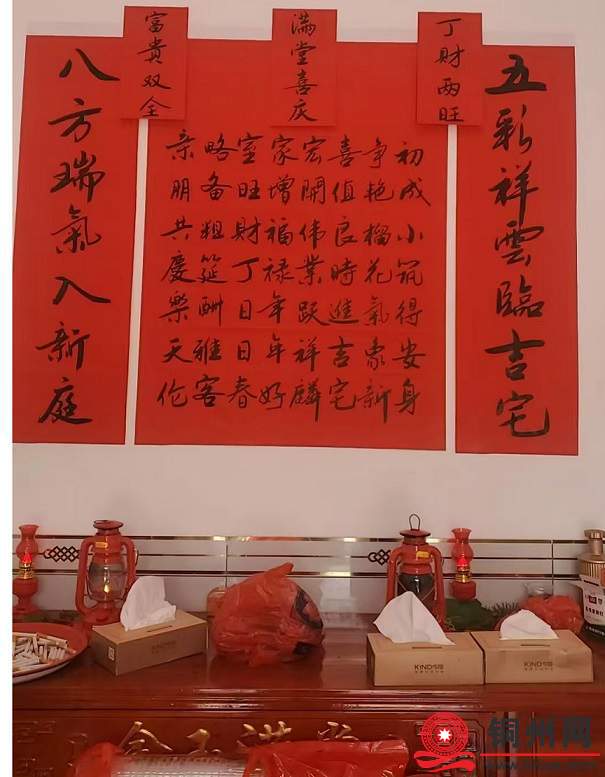 丁財两旺
满堂喜庆
富貴双全
五彩祥雲臨吉宅
初成小筑得安身
争艳榴花氣象新
喜值良時進吉宅
宏開伟業跃祥麟
家增福禄年年好
室旺財丁日日春
略备粗筵酬雅客
亲朋共慶樂天伦
八方瑞氣入新庭
KIND
KIND
KIND
铜州网